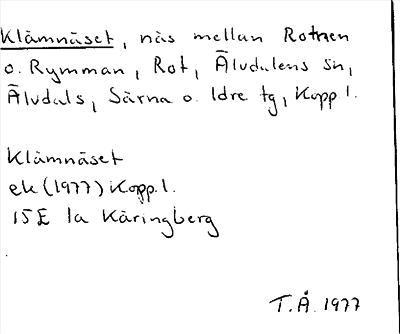 Klämnäset, näs mellan Rotnen
o. Rymman, Rot, Älvdalens sn,
Älvdals, Särna o. Idre tg, Kopp l.
Klämnäset
ek (1977) Kopp. l.
15E 1a Käringberg
T.Å. 1977